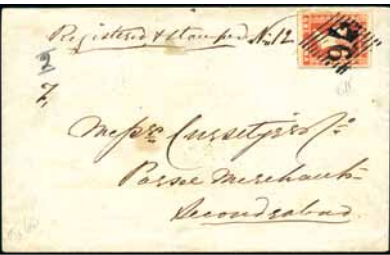 Registered & stamped No 12
2
7.
Messrs Cursetjee & Co
Parsee Merchants
Secondrabad